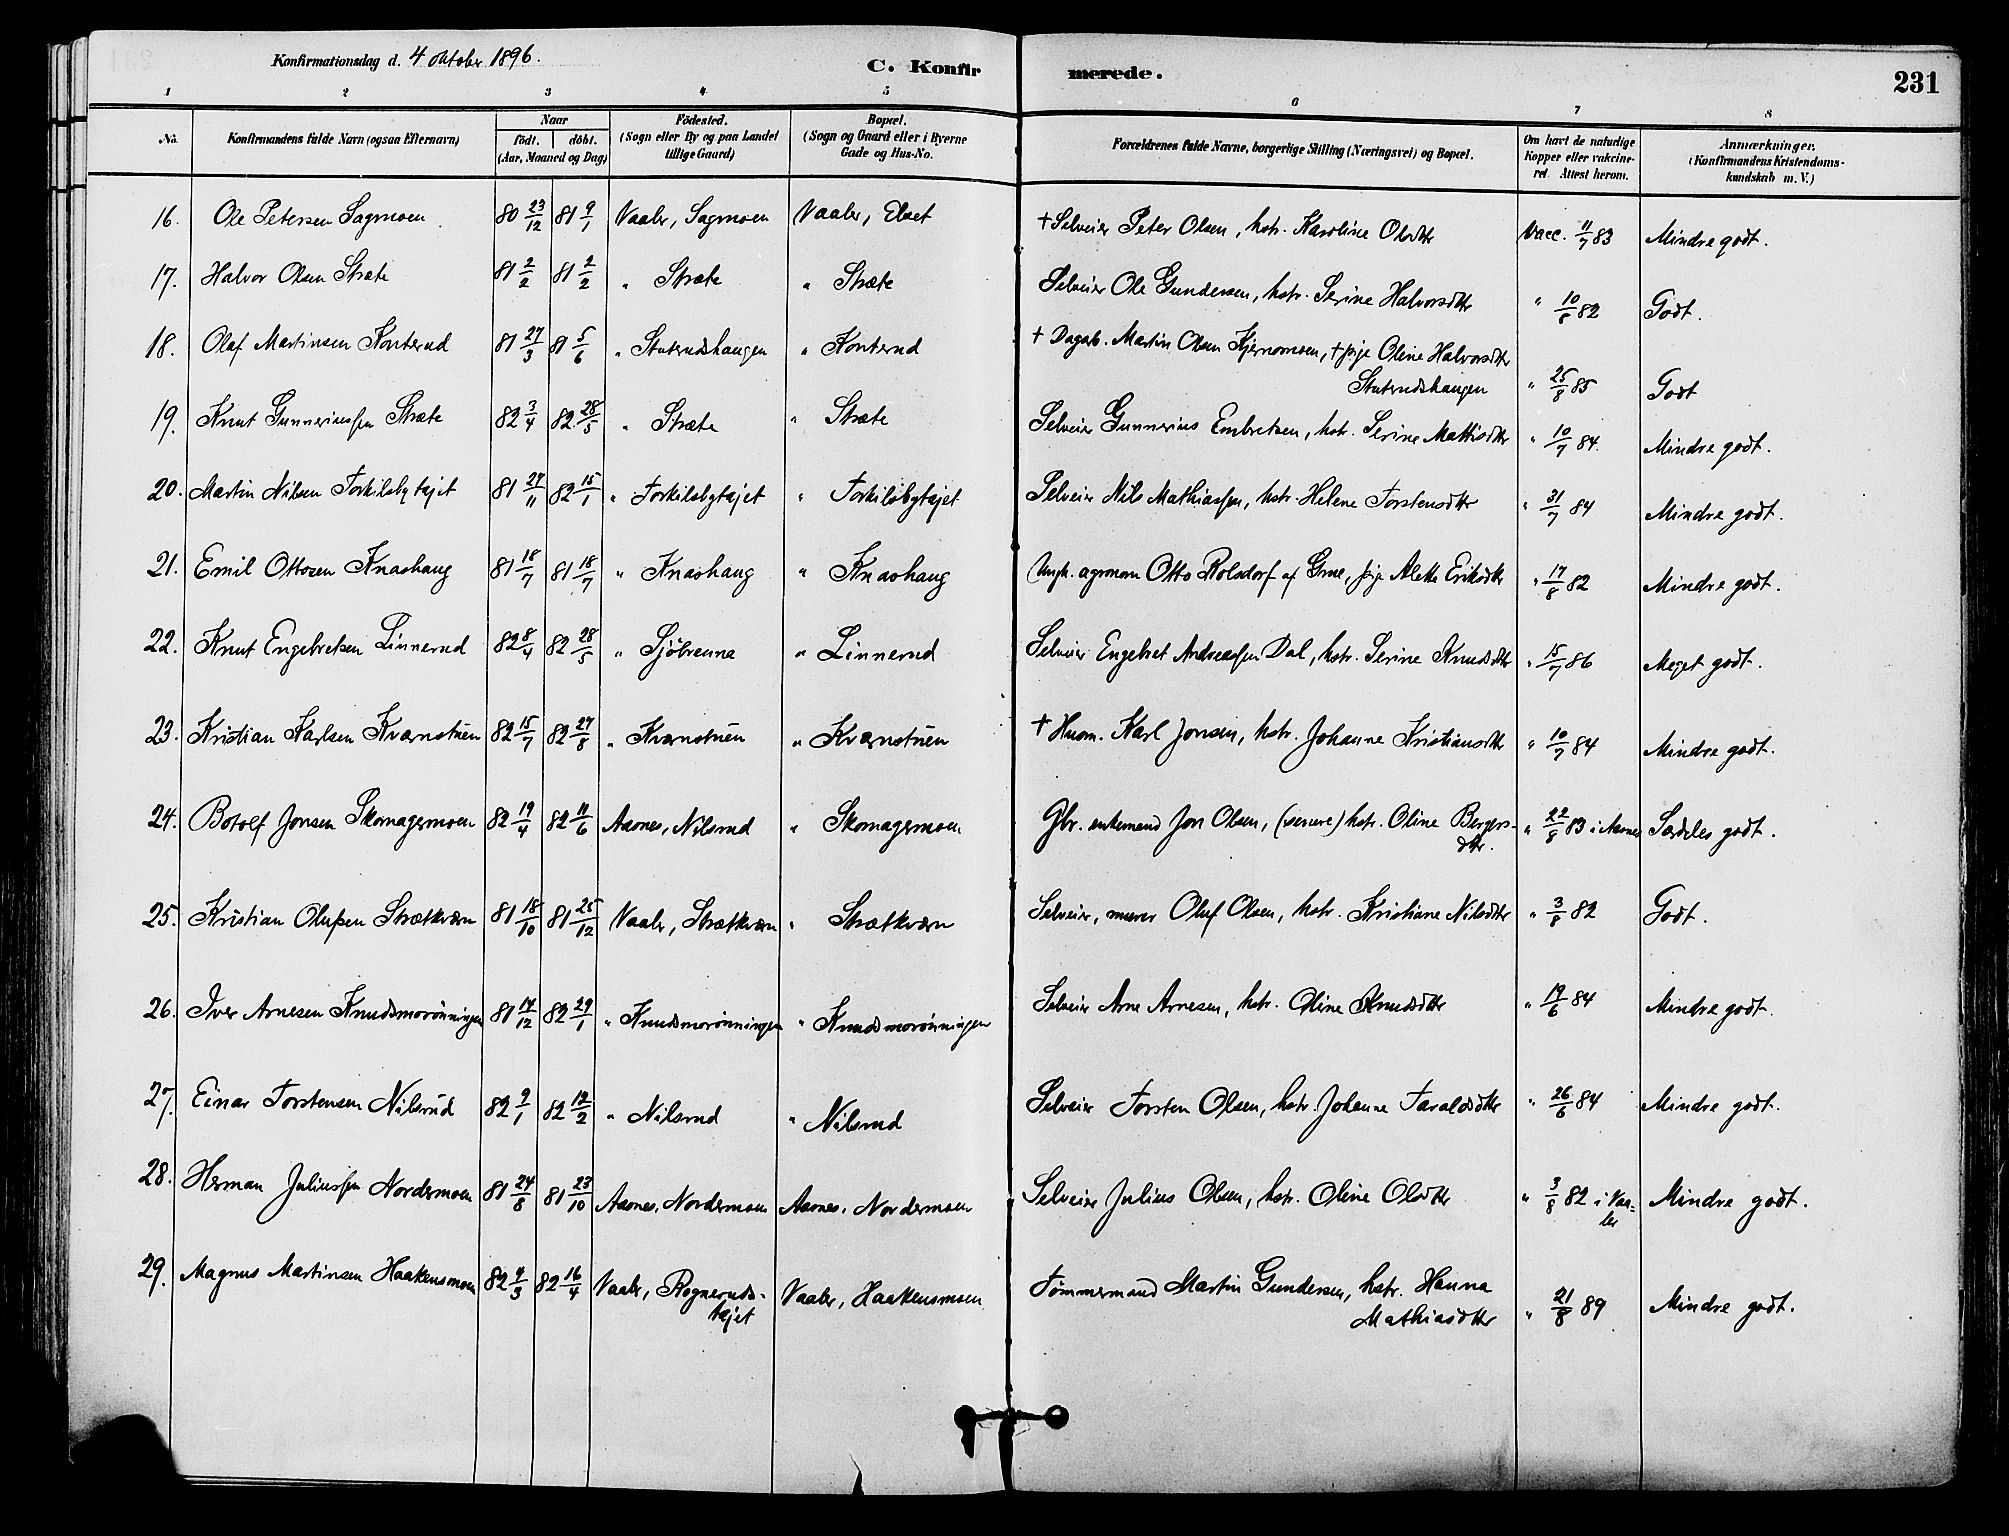 Konfirmationsdag d. 4 oktober 1896.
C. Konfirmerede.
231
1 2 3 4 5 6 7 8
No. Konfirmandens fulde Navn (ogsaa Efternavn) Naar født. døbt. (Aar, Maaned og Dag) Födested. (Sogn eller By og paa Landet tillige Gaard) Bopæl. (Sogn og Gaard eller i Byerne Gade og Hus-No. Forældrenes fulde Navne, borgerlige Stilling (Næringsvei) og Bopæl. Om havt de naturlige Kopper eller vakcineret. Attest herom. Anmærkninger. (Konfirmandens Kristendomskundskab m. V.)
16. Ole Petersen Sagmoen 80 23/12 81 9/1 Vaaler, Sagmoen Vaaler, Elvet † Selveier Peter Olsen, hstr. Karoline Olsdtr Vacc. 11/7 83 Mindre godt.
17. Halvor Olsen Stræte 81 2/2 81 2/2 " Stræte " Stræte Selveier Ole Gundersen, hstr. Serine Halvorsdtr " 10/8 82 Godt.
18. Olaf Martinsen Konterud 81 27/3 81 5/6 " Staterudshaugen " Konterud † Dagarb. Martin Olsen Kjernmoen, † pige Oline Halvorsdtr
Staterudshaugen " 25/8 85 Godt
19. Knut Gunneriussen Stræte 82 3/4 82 28/5 " Stræte " Stræte Selveier Gunnerius Embretsen, hstr. Serine Mattisdtr " 10/7 84. Mindre godt.
20. Martin Nilsen Torkilsbytajet 81 27/11 82 15/1 " Torkilsbytajet " Torkilsbytajet Selveier Nils Mathiassen, hstr. Helene Torstensdtr " 31/7 84 Mindre godt.
21. Emil Ottosen Knashaug 81 18/7 81 18/7 " Knashaug " Knashaug Ungk. agronom Otto Rolsdorf af Grue, pige Alette Eriksdtr " 17/8 82 Mindre godt.
22. Knut Engebretsen Linnerud 82 8/4 82 28/5 " Sjøbrenna " Linnerud Selveier Engebret Andreassen Dal, hstr. Serine Knudsdtr " 15/7 86 Meget godt.
23. Kristian Karlsen Kværnstuen 82 15/7 82 27/8 " Kværnstuen " Kværnstuen † Husm. Karl Jonsen, hstr. Johanne Kristiansdtr " 10/7 84 Mindre godt.
24. Botolf Jonsen Skomagermoen 82 19/4 82 11/6 Aasnes, Nilsrud " Skomagermoen Gbr. enkemand Jon Olsen, (senere) hstr. Oline Bergers-
dtr. " 22/8 83 i Aasnes Særdeles godt.
25. Kristian Olufsen Strætkværn 81 18/10 81 25/12 Vaaler, Strætkværn " Strætkværn Selveier, murer Oluf Olsen, hstr. Kristiane Nilsdtr " 3/8 82 Godt.
26. Iver Arnesen Knudsmorønningen 81 17/12 82 29/1 " Knudsmorønningen " Knudsmorønningen Selveier Arne Arnesen, hstr. Oline Knudsdtr " 19/6 84 Mindre godt.
27. Einar Torstensen Nilsrud 82 9/1 82 12/2 " Nilsrud " Nilsrud Selveier Torsten Olsen, hstr. Johanne Taraldsdtr " 26/6 84 Mindre godt.
28. Herman Juliussen Nordermoen 81 24/8 81 23/10 Aasnes, Nordermoen Aasnes, Nordermoen Selveier Julius Olsen, hstr. Oline Olsdtr " 3/8 82 i Vaa-
ler Mindre godt.
29. Magnus Martinsen Haakensmoen 82 4/3 82 16/4 Vaaler, Rogneruds-
tajet Vaaler, Haakensmoen Tømmermand Martin Gundersen, hstr. Hanna
Mathiasdtr " 21/8 89 Mindre godt.